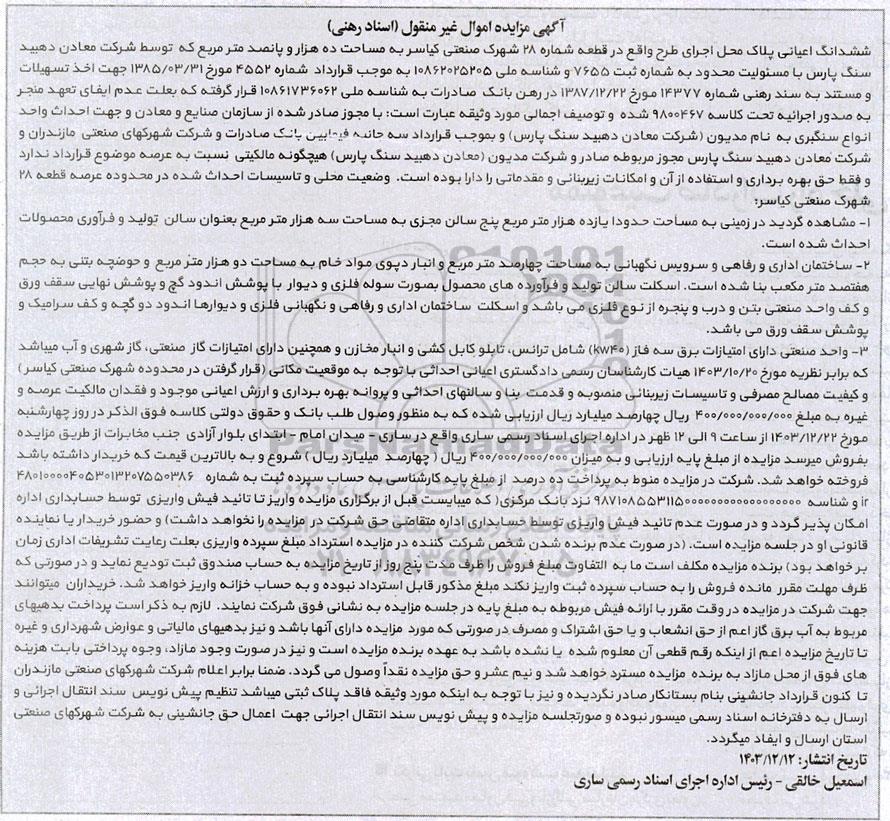 آگهی مزایده اموال غیر منقول (اسناد رهنی)
ششدانگ اعیانی پلاک محل اجرای طرح واقع در قطعه شماره ۲۸ شهرک صنعتی کیاسر به مساحت ده هزار و پانصد متر مربع که توسط شرکت معادن دهبید
سنگ پارس با مسئولیت محدود به شماره ثبت ۷۶۵۵ و شناسه ملی ۱۰۸۶۲۰۲۵۲۰۵ به موجب قرارداد شماره ۴۵۵۲ مورخ ۱۳۸۵/۰۳/۳۱ جهت اخذ تسهیلات
و مستند به سند رهنی شماره ۱۴۳۷۷ مورخ ۱۳۸۷/۱۲/۲۲ در رهن بانک صادرات به شناسه ملی ۱۰۸۶۱۷۳۶۰۶۲ قرار گرفته که بعلت عدم ایفای تعهد منجر
به صدور اجرائیه تحت کلاسه ۹۸۰۰۴۶۷ شده و توصیف اجمالی مورد وثیقه عبارت است: با مجوز صادر شده از سازمان صنایع و معادن و جهت احداث واحد
انواع سنگبری به نام مدیون (شرکت معادن دهبید سنگ پارس) و بموجب قرارداد سه جانبه فیمابین بانک صادرات و شرکت شهرکهای صنعتی مازندران و
شرکت معادن دهبید سنگ پارس مجوز مربوطه صادر و شرکت مدیون (معادن دهبید سنگ پارس) هیچگونه مالکیتی نسبت به عرصه موضوع قرارداد ندارد
و فقط حق بهره برداری و استفاده از آن و امکانات زیربنائی و مقدماتی را دارا بوده است. وضعیت محلی و تاسیسات احداث شده در محدوده عرصه قطعه ۲۸
شهرک صنعتی کیاسر:
۱- مشاهده گردید در زمینی به مساحت حدودا یازده هزار متر مربع پنج سالن مجزی به مساحت سه هزار متر مربع بعنوان سالن تولید و فرآوری محصولات
احداث شده است.
۲- ساختمان اداری و رفاهی و سرویس نگهبانی به مساحت چهارصد متر مربع و انبار دپوی مواد خام به مساحت دو هزار متر مربع و حوضچه بتنی به حجم
هفتصد متر مکعب بنا شده است. اسکلت سالن تولید و فرآورده های محصول بصورت سوله فلزی و دیوار با پوشش اندود گچ و پوشش نهایی سقف ورق
و کف واحد صنعتی بتن و درب و پنجره از نوع فلزی می باشد و اسکلت ساختمان اداری و رفاهی و نگهبانی فلزی و دیوارها اندود دو گچه و کف سرامیک و
پوشش سقف ورق می باشد.
۳- واحد صنعتی دارای امتیازات برق سه فاز (kw۴۰) شامل ترانس، تابلو کابل کشی و انبار مخازن و همچنین دارای امتیازات گاز صنعتی، گاز شهری و آب میباشد
که برابر نظریه مورخ ۱۴۰۳/۱۰/۲۰ هیات کارشناسان رسمی دادگستری اعیانی احداثی با توجه به موقعیت مکانی (قرار گرفتن در محدوده شهرک صنعتی کیاسر)
و کیفیت مصالح مصرفی و تاسیسات زیربنائی منصوبه و قدمت بنا و سالنهای احداثی و پروانه بهره برداری و ارزش اعیانی موجود و فقدان مالکیت عرصه و
غیره به مبلغ ۴۰۰/۰۰۰/۰۰۰/۰۰۰ ریال چهارصد میلیارد ریال ارزیابی شده که به منظور وصول طلب بانک و حقوق دولتی کلاسه فوق الذکر در روز چهارشنبه
مورخ ۱۴۰۳/۱۲/۲۲ از ساعت ۹ الی ۱۲ ظهر در اداره اجرای اسناد رسمی ساری واقع در ساری - میدان امام - ابتدای بلوار آزادی جنب مخابرات از طریق مزایده
بفروش میرسد مزایده از مبلغ پایه ارزیابی و به میزان ۴۰۰/۰۰۰/۰۰۰/۰۰۰ ریال (چهارصد میلیارد ریال) شروع و به بالاترین قیمت که خریدار داشته باشد
فروخته خواهد شد. شرکت در مزایده منوط به پرداخت ده درصد از مبلغ پایه کارشناسی به حساب سپرده ثبت به شماره
ir و شناسه نزد بانک مرکزی( که میبایست قبل از برگزاری مزایده واریز تا تائید فیش واریزی توسط حسابداری اداره
امکان پذیر گردد و در صورت عدم تائید فیش واریزی توسط حسابداری اداره متقاضی حق شرکت در مزایده را نخواهد داشت) و حضور خریدار یا نماینده
قانونی او در جلسه مزایده است. (در صورت عدم برنده شدن شخص شرکت کننده در مزایده استرداد مبلغ سپرده واریزی بعلت رعایت تشریفات اداری زمان
بر خواهد بود) برنده مزایده مکلف است ما به التفاوت مبلغ فروش را ظرف مدت پنج روز از تاریخ مزایده به حساب صندوق ثبت تودیع نماید و در صورتی که
ظرف مهلت مقرر مانده فروش را به حساب سپرده ثبت واریز نکند مبلغ مذکور قابل استرداد نبوده و به حساب خزانه واریز خواهد شد. خریداران میتوانند
جهت شرکت در مزایده در وقت مقرر با ارائه فیش مربوطه به مبلغ پایه در جلسه مزایده به نشانی فوق شرکت نمایند. لازم به ذکر است پرداخت بدهیهای
مربوط به آب برق گاز اعم از حق انشعاب و یا حق اشتراک و مصرف در صورتی که مورد مزایده دارای آنها باشد و نیز بدهیهای مالیاتی و عوارض شهرداری و غیره
تا تاریخ مزایده اعم از اینکه رقم قطعی آن معلوم شده یا نشده باشد به عهده برنده مزایده است و نیز در صورت وجود مازاد، وجوه پرداختی بابت هزینه
های فوق از محل مازاد به برنده مزایده مسترد خواهد شد و نیم عشر و حق مزایده نقداً وصول می گردد. ضمنا برابر اعلام شرکت شهرکهای صنعتی مازندران
تا کنون قرارداد جانشینی بنام بستانکار صادر نگردیده و نیز با توجه به اینکه مورد وثیقه فاقد پلاک ثبتی میباشد تنظیم پیش نویس سند انتقال اجرائی و
ارسال به دفترخانه اسناد رسمی میسور نبوده و صورتجلسه مزایده و پیش نویس سند انتقال اجرائی جهت اعمال حق جانشینی به شرکت شهرکهای صنعتی
استان ارسال و ایفاد میگردد.
تاریخ انتشار: ۱۴۰۳/۱۲/۱۲
اسمعیل خالقی - رئیس اداره اجرای اسناد رسمی ساری